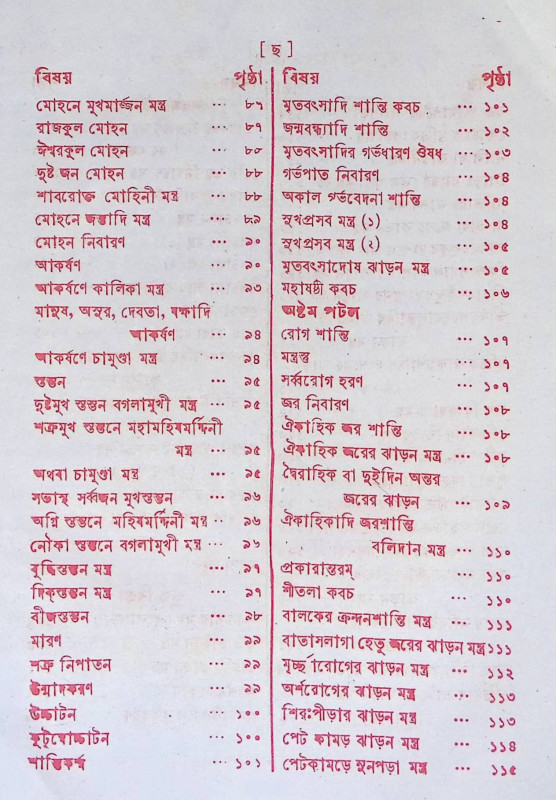 [ ছ ]
বিষয় পৃষ্ঠা
মোহনে মুখমার্জ্জন মন্ত্র ··· ৮৭
রাজকুল মোহন ··· ৮৭
ঈশ্বরকুল মোহন ··· ৮৮
দুষ্ট জন মোহন ··· ৮৮
শাবরোক্ত মোহিনী মন্ত্র ··· ৮৮
মোহনে জম্ভাদি মন্ত্র ··· ৮৯
মোহন নিবারণ ··· ৯০
আকর্ষণ ··· ৯০
আকর্ষণে কালিকা মন্ত্র ··· ৯৩
মানুষ, অসুর, দেবতা, যক্ষাদি
আকর্ষণ ··· ৯৪
আকর্ষণে চামুণ্ডা মন্ত্র ··· ৯৪
স্তম্ভন ··· ৯৫
দুষ্টমুখ স্তম্ভন বগলামুখী মন্ত্র ··· ৯৫
শত্রুমুখ স্তম্ভনে মহামহিষমর্দ্দিনী
মন্ত্র ··· ৯৫
অথবা চামুণ্ডা মন্ত্র ··· ৯৫
সভাস্থ সর্ব্বজন মুখস্তম্ভন ··· ৯৬
অগ্নি স্তম্ভনে মহিষমর্দ্দিনী মন্ত্র ·· ৯৬
নৌকা স্তম্ভনে বগলামুখী মন্ত্র ·· ৯৬
বুদ্ধিস্তম্ভন মন্ত্র ··· ৯৭
দিক্‌স্তম্ভন মন্ত্র ··· ৯৭
বীজস্তম্ভন ··· ৯৮
মারণ ··· ৯৯
শত্রু নিপাতন ··· ৯৯
উন্মাদকরণ ··· ৯৯
উচ্চাটন ··· ১০০
··· ১০০
শান্তিকর্ম্ম ··· ১০১
বিষয় পৃষ্ঠা
মৃতবৎসাদি শান্তি কবচ ··· ১০১
জন্মবন্ধ্যাদি শান্তি ··· ১০২
মৃতবৎসাদির গর্ভধারণ ঔষধ ··· ১০৩
গর্ভপাত নিবারণ ··· ১০৪
অকাল গর্ভবেদনা শান্তি ··· ১০৪
সুখপ্রসব মন্ত্র (১) ··· ১০৪
সুখপ্রসব মন্ত্র (২) ··· ১০৫
মৃতবৎসাদোষ ঝাড়ন মন্ত্র ··· ১০৫
মহাষষ্ঠী কবচ ··· ১০৬
অষ্টম পটল
রোগ শান্তি ··· ১০৭
··· ১০৭
সর্ব্বরোগ হরণ ··· ১০৭
জর নিবারণ ··· ১০৮
ঐকাহিক জর শান্তি ··· ১০৮
ঐকাহিক জরের ঝাড়ন মন্ত্র ··· ১০৮
দ্বৈরাহিক বা দুইদিন অন্তর
জরের ঝাড়ন ··· ১০৯
ঐকাহিকাদি জরশান্তি
বলিদান মন্ত্র ··· ১১০
প্রকারান্তরম্ ··· ১১০
শীতলা কবচ ··· ১১০
বালকের ক্রন্দনশান্তি মন্ত্র ··· ১১১
বাতাসলাগা হেতু জরের ঝাড়ন মন্ত্র ১১১
মূর্চ্ছারোগের ঝাড়ন মন্ত্র ··· ১১২
অর্শরোগের ঝাড়ন মন্ত্র ··· ১১৩
শিরঃপীড়ার ঝাড়ন মন্ত্র ··· ১১৩
পেট কামড় ঝাড়ন মন্ত্র ··· ১১৪
পেটকামড়ে নুনপড়া মন্ত্র ··· ১১৫